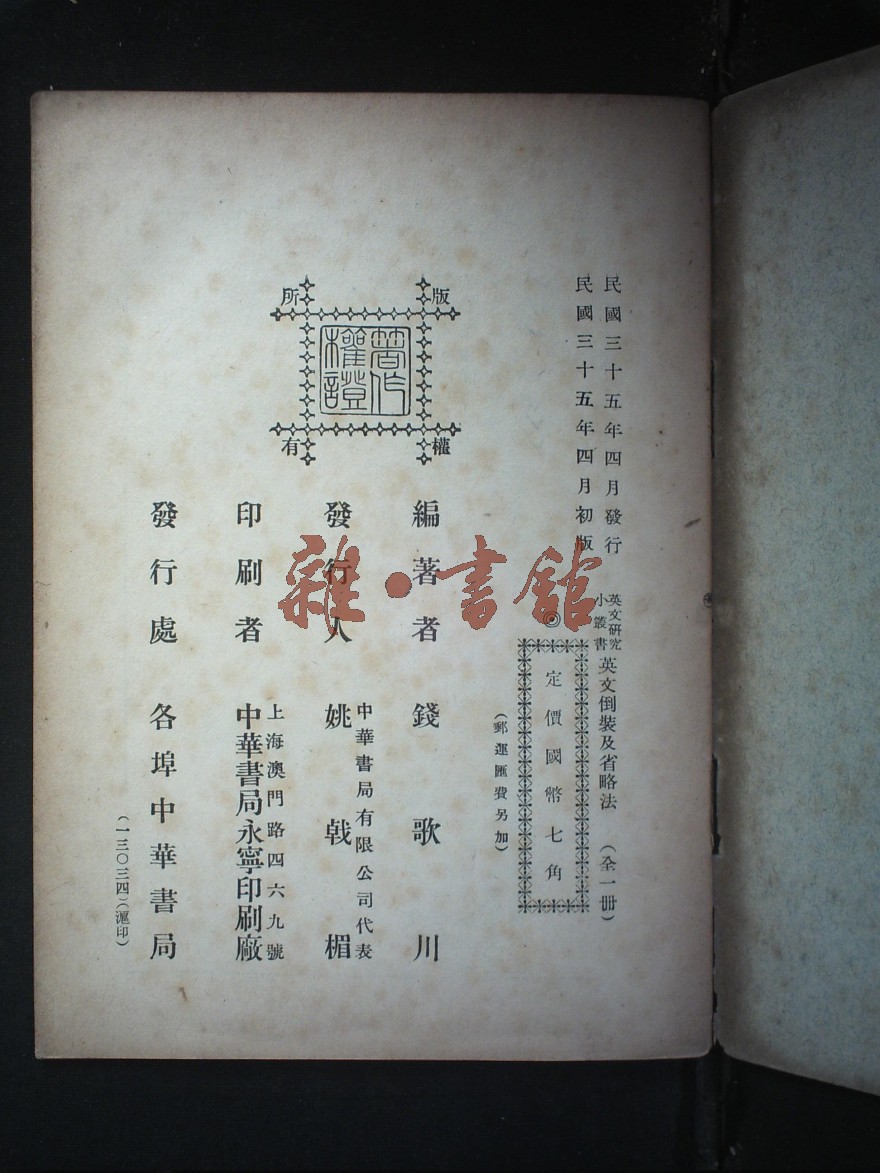 民國三十五年四月發行
民國三十五年四月初版
英文研究小叢書 英文倒裝及省略法 (全一冊)
◎定價國幣七角
(郵運匯費另加)
版權所有
著作權證
編著者 錢歌川
發行人 中華書局有限公司代表 姚戟楣
印刷者 上海澳門路四六九號 中華書局永寧印刷廠
發行處 各埠中華書局
(一三〇三四)(滬印)
雜·書館